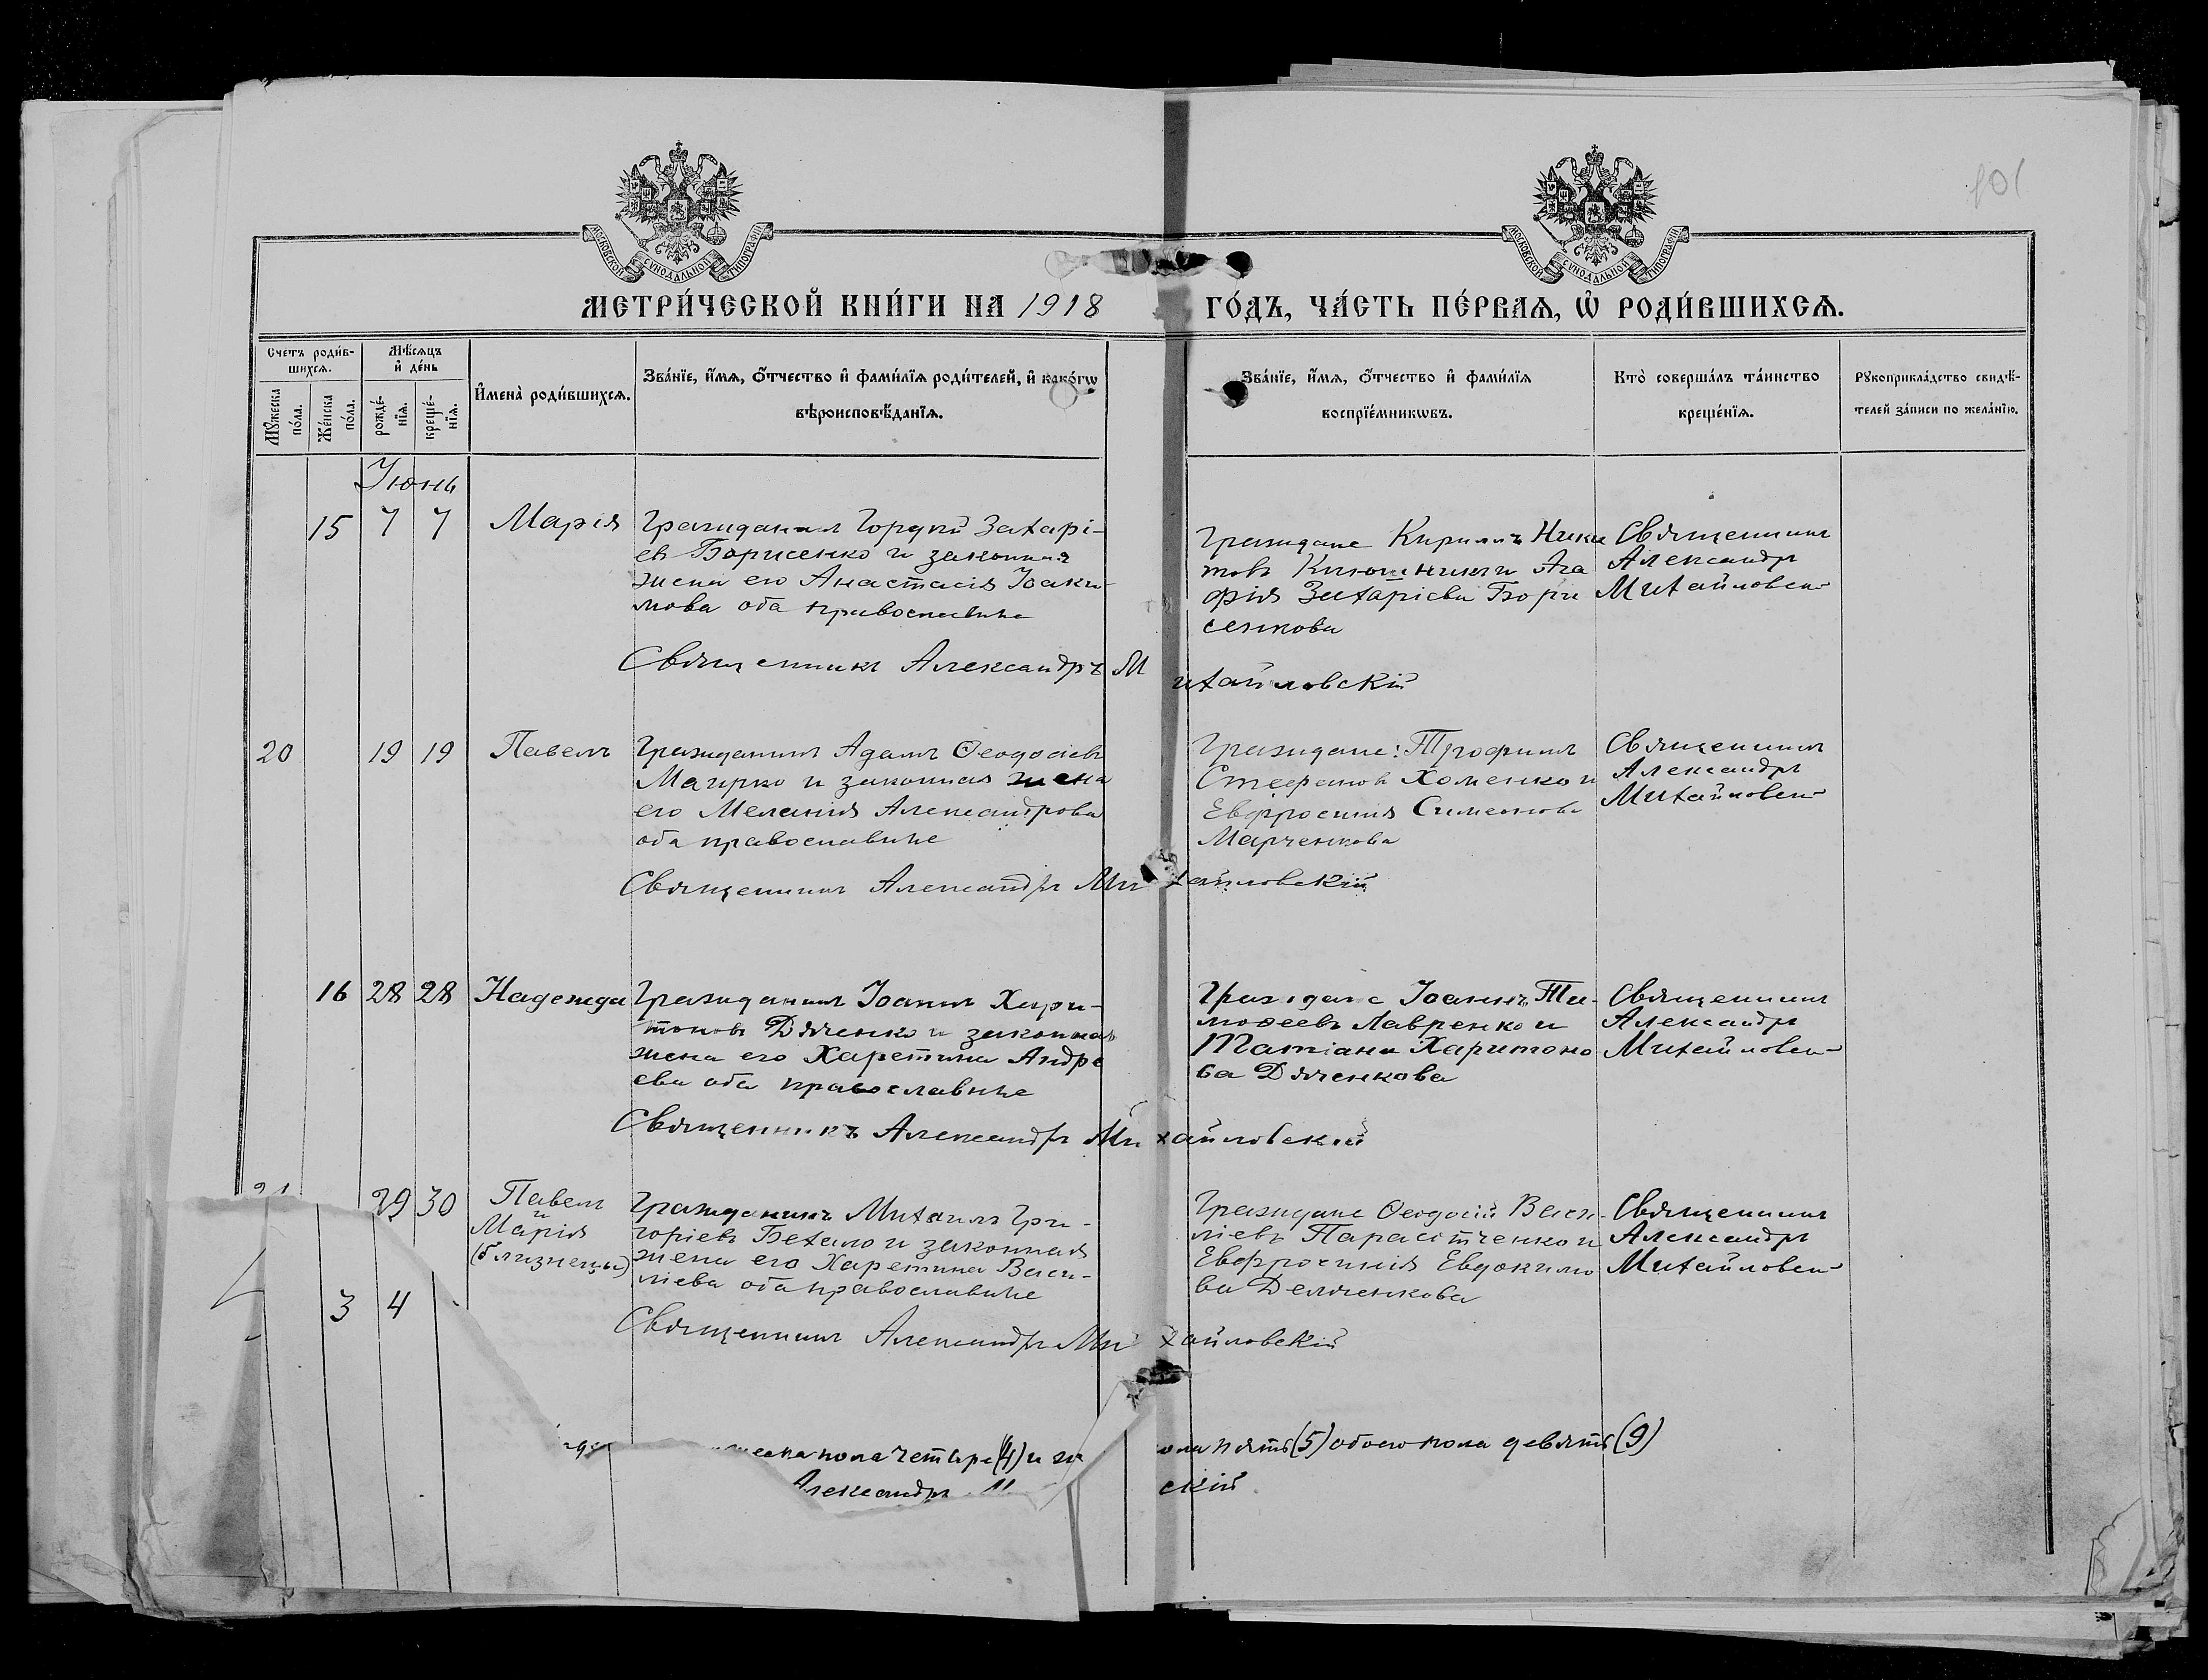 101
МОСКОВСКОЙ СУНОДАЛЬНОЙ ТИПОГРАФІИ
МОСКОВСКОЙ СУНОДАЛЬНОЙ ТИПОГРАФІИ
МЕТРИ́ЧЕСКОЙ КНИ́ГИ НА 1918 ГО́ДЪ, ЧА́СТЬ ПЕ́РВАѦ, Ѡ҆ РОДИ́ВШИХСѦ.
Счетъ роди́в-
шихсѧ.
Мꙋжеска
по́ла.
Же́нска
по́ла.
Мѣ́сѧцъ
и҆ де́нь
рожде́-
нїѧ.
креще́-
нїѧ.
И҆мена̀ роди́вшихсѧ.
Зва́нїе, и҆́мѧ, ѻ҆́тчество и҆ фами́лїѧ роди́телей, и҆ како́гѡ
вѣроисповѣ́данїѧ.
Зва́нїе, и҆́мѧ, ѻ҆́тчество и҆ фами́лїѧ
воспрїе́мникѡвъ.
Кто̀ соверша́лъ та́инство
креще́нїѧ.
Рꙋкоприкла́дство свидѣ́-
телей за́писи по жела́нїю.
Іюнь
15 7 7 Марія
Гражданинъ Гордѣй Захарі-
евъ Борисенко и законная
жена его Анастасія Іоаки-
мова оба православные
Граждане Кириллъ Ники
товъ и Ага
фія Захаріева Бори
сенкова
Священникъ
Александръ
Михайловск
Священникъ Александръ Михайловскій
20 19 19 Павелъ
Гражданинъ Адамъ Ѳеодосіевъ
и законная жена
его Меланія Александрова
оба православные
Граждане: Трофимъ
Стефановъ Хоменко и
Евфросинія Симеонова
Марченкова
Священникъ
Александръ
Михайловск
Священникъ Александръ Михайловскій
16 28 28 Надежда
Гражданинъ Іоаннъ Хари-
тоновъ Дяченко и законная
жена его Харетина Андре
ева оба православные
Граждане Іоаннъ Ти-
моѳеевъ Лавренко и
Татіана Харитоно
ва Дяченкова
Священникъ
Александръ
Михайловск
Священникъ Александръ Михайловскій
29 30 Павелъ
и
Марія
(близнецы)
Гражданинъ Михаилъ Гри-
горіевъ Бехало и законная
жена его Харетина Васи-
ліева оба православные
Граждане Ѳеодосій Васи-
ліевъ Парастченко и
Евфросинія Евдокимо
ва Деяченкова
Священникъ
Александръ
Михайловск
Священникъ Александръ Михайловскій
3 4
пола четыре (4) и
ола пять (5) обоего пола девять (9)
Александръ М
скій